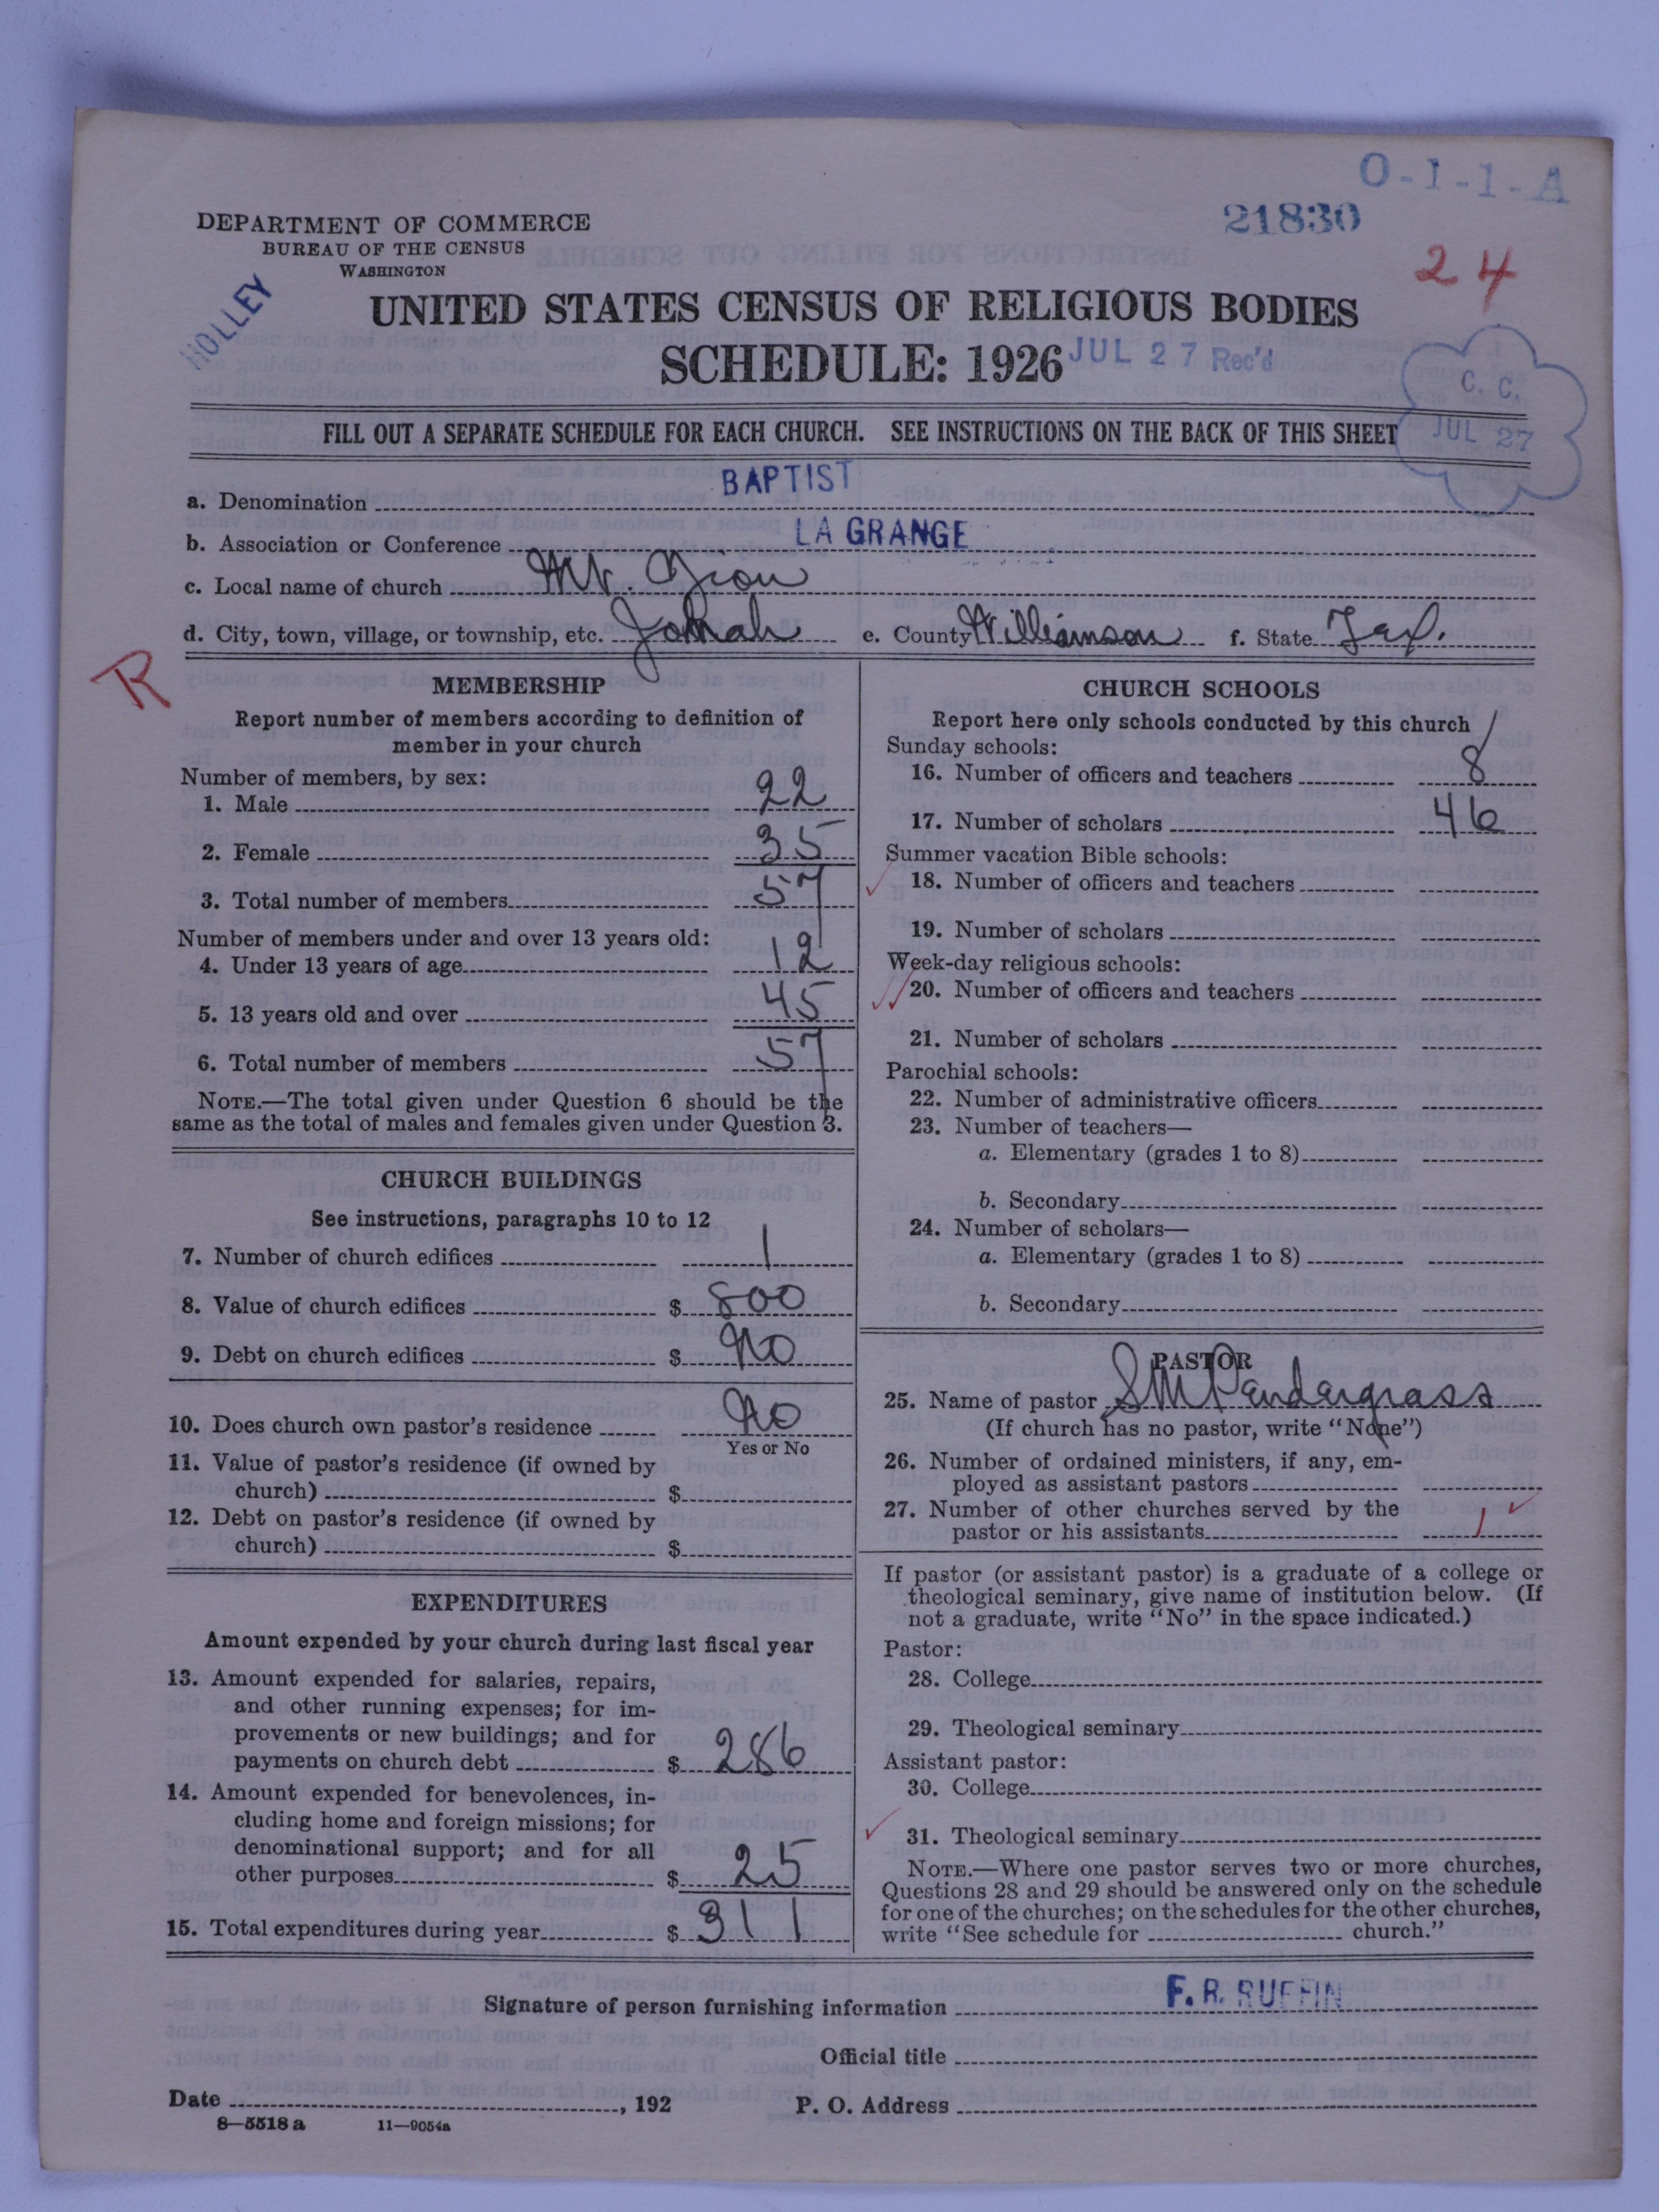 O-1-1-A
21830
24
DEPARTMENT OF COMMERCE
BUREAU OF THE CENSUS
WASHINGTON
HOLLEY
UNITED STATES CENSUS OF RELIGIOUS BODIES
SCHEDULE: 1926
JUL 27 Rec'd
C. C.
JUL 27
FILL OUT A SEPARATE SCHEDULE FOR EACH CHURCH. SEE INSTRUCTIONS ON THE BACK OF THIS SHEET
a. Denomination BAPTIST
b. Association or Conference LA GRANGE
c. Local name of church Mt. Zion
d. City, town, village, or township, etc. Jonah e. County Williamson f. State Tex.
R
MEMBERSHIP
Report number of members according to definition of
member in your church
Number of members, by sex:
1. Male 22
2. Female 35
3. Total number of members 57
Number of members under and over 13 years old:
4. Under 13 years of age 12
5. 13 years old and over 45
6. Total number of members 57
NOTE.—The total given under Question 6 should be the
same as the total of males and females given under Question 3.
CHURCH BUILDINGS
See instructions, paragraphs 10 to 12
7. Number of church edifices 1
8. Value of church edifices $ 800
9. Debt on church edifices $ No
10. Does church own pastor's residence No
Yes or No
11. Value of pastor's residence (if owned by
church) $
12. Debt on pastor's residence (if owned by
church) $
EXPENDITURES
Amount expended by your church during last fiscal year
13. Amount expended for salaries, repairs,
and other running expenses; for im-
provements or new buildings; and for
payments on church debt $ 286
14. Amount expended for benevolences, in-
cluding home and foreign missions; for
denominational support; and for all
other purposes $ 25
15. Total expenditures during year $ 311
CHURCH SCHOOLS
Report here only schools conducted by this church
Sunday schools:
16. Number of officers and teachers 8
17. Number of scholars 46
Summer vacation Bible schools:
18. Number of officers and teachers
19. Number of scholars
Week-day religious schools:
20. Number of officers and teachers
21. Number of scholars
Parochial schools:
22. Number of administrative officers
23. Number of teachers—
a. Elementary (grades 1 to 8)
b. Secondary
24. Number of scholars—
a. Elementary (grades 1 to 8)
b. Secondary
PASTOR
25. Name of pastor S M Pendergrass
(If church has no pastor, write "None")
26. Number of ordained ministers, if any, em-
ployed as assistant pastors
27. Number of other churches served by the
pastor or his assistants 1
If pastor (or assistant pastor) is a graduate of a college or
theological seminary, give name of institution below. (If
not a graduate, write "No" in the space indicated.)
Pastor:
28. College
29. Theological seminary
Assistant pastor:
30. College
31. Theological seminary
NOTE.—Where one pastor serves two or more churches,
Questions 28 and 29 should be answered only on the schedule
for one of the churches; on the schedules for the other churches,
write "See schedule for church."
Signature of person furnishing information F. R. RUFFIN
Official title
Date , 192 P. O. Address
8—5518 a 11—9054a